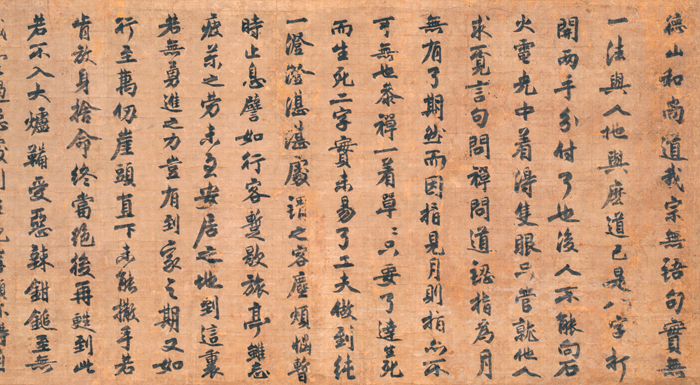 德山和尚道我宗無語句實無
一法與人他與麽道已是八字打
開兩手分付了也後人不能向石
火電光中着得隻眼只管就他人
求覓言句問禪問道認指為月
無有了期然而因指見月則指亦不
可無也叅禪一着單〻只要了達生死
而生死二字實未易了工夫做到純
一澄澄湛湛處謂之客塵煩惱暫
時止息譬如行客蹔歇旅亭雖忘
疲苶之勞未至安居之地到這裏
若無勇進之力豈有到家之期又如
行至萬仞崖頭直下未能撒手若
肯放身捨命終當絕後再甦到此
若不入大爐鞴受惡辣鉗鎚至無